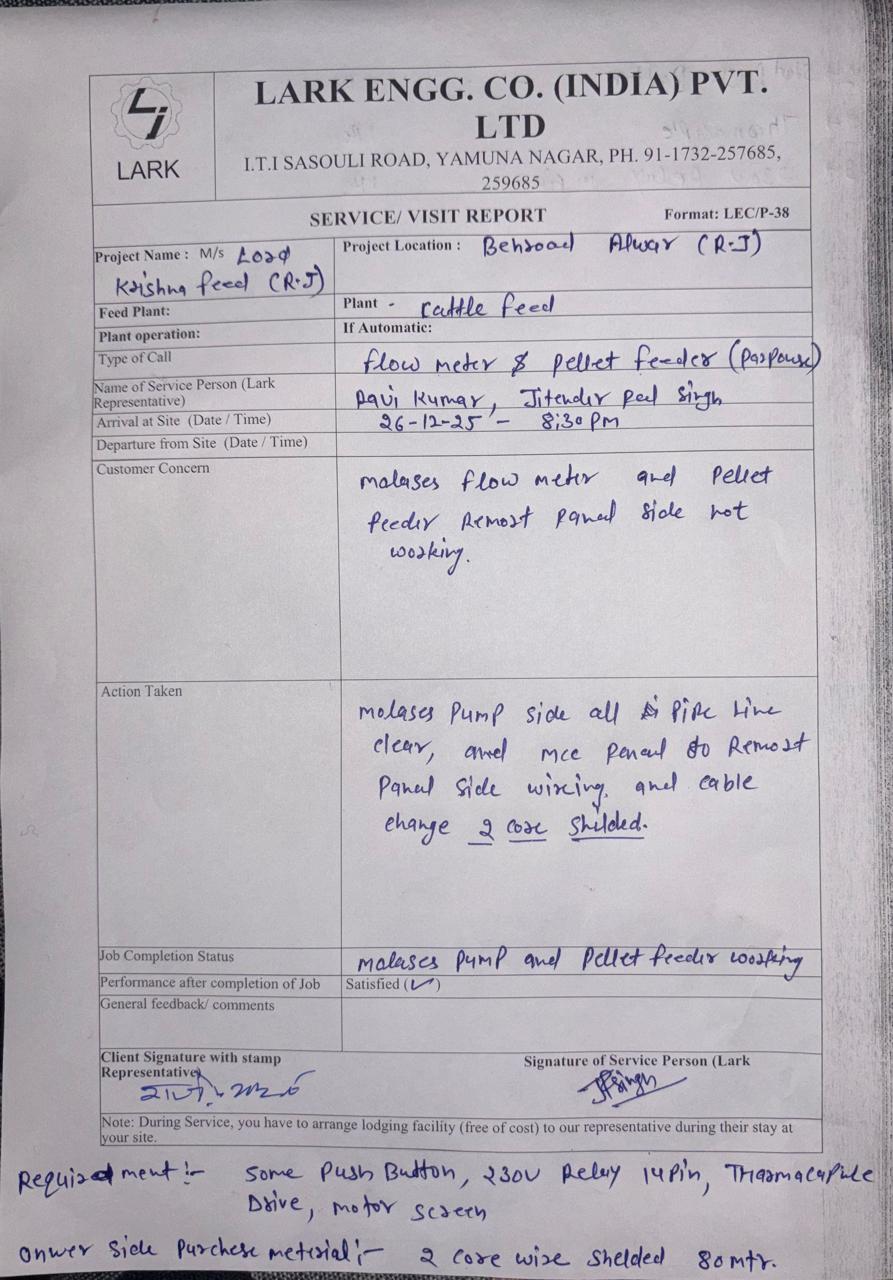 LARK
LARK ENGG. CO. (INDIA) PVT.
LTD
I.T.I SASOULI ROAD, YAMUNA NAGAR, PH. 91-1732-257685,
259685
SERVICE/ VISIT REPORT
Format: LEC/P-38
Project Name : M/s Lord
Krishna feed (R·J)
Project Location : Behroad Alwar (R·J)
Feed Plant:
Plant - Cattle feed
Plant operation:
If Automatic:
Type of Call
flow meter & pellet feeder (Parpouse)
Name of Service Person (Lark
Representative)
Ravi Kumar, Jitender pal Singh
Arrival at Site (Date / Time)
26-12-25 - 8:30 PM
Departure from Site (Date / Time)
Customer Concern
molases flow meter and pellet
feeder Remort panal side not
working.
Action Taken
molases pump side all pipe line
clear, and mcc panal to Remort
panal side wiring, and cable
change 2 core shilded.
Job Completion Status
molases pump and pellet feeder working
Performance after completion of Job
Satisfied (✓)
General feedback/ comments
Client Signature with stamp
Representative)
Signature of Service Person (Lark
JPSingh
Note: During Service, you have to arrange lodging facility (free of cost) to our representative during their stay at
your site.
Requirdment :- Some Push Button, 230V Relay 14 Pin,
Drive, motor screen
Onwer side purchese meterial :- 2 core wire shelded 80 mtr.